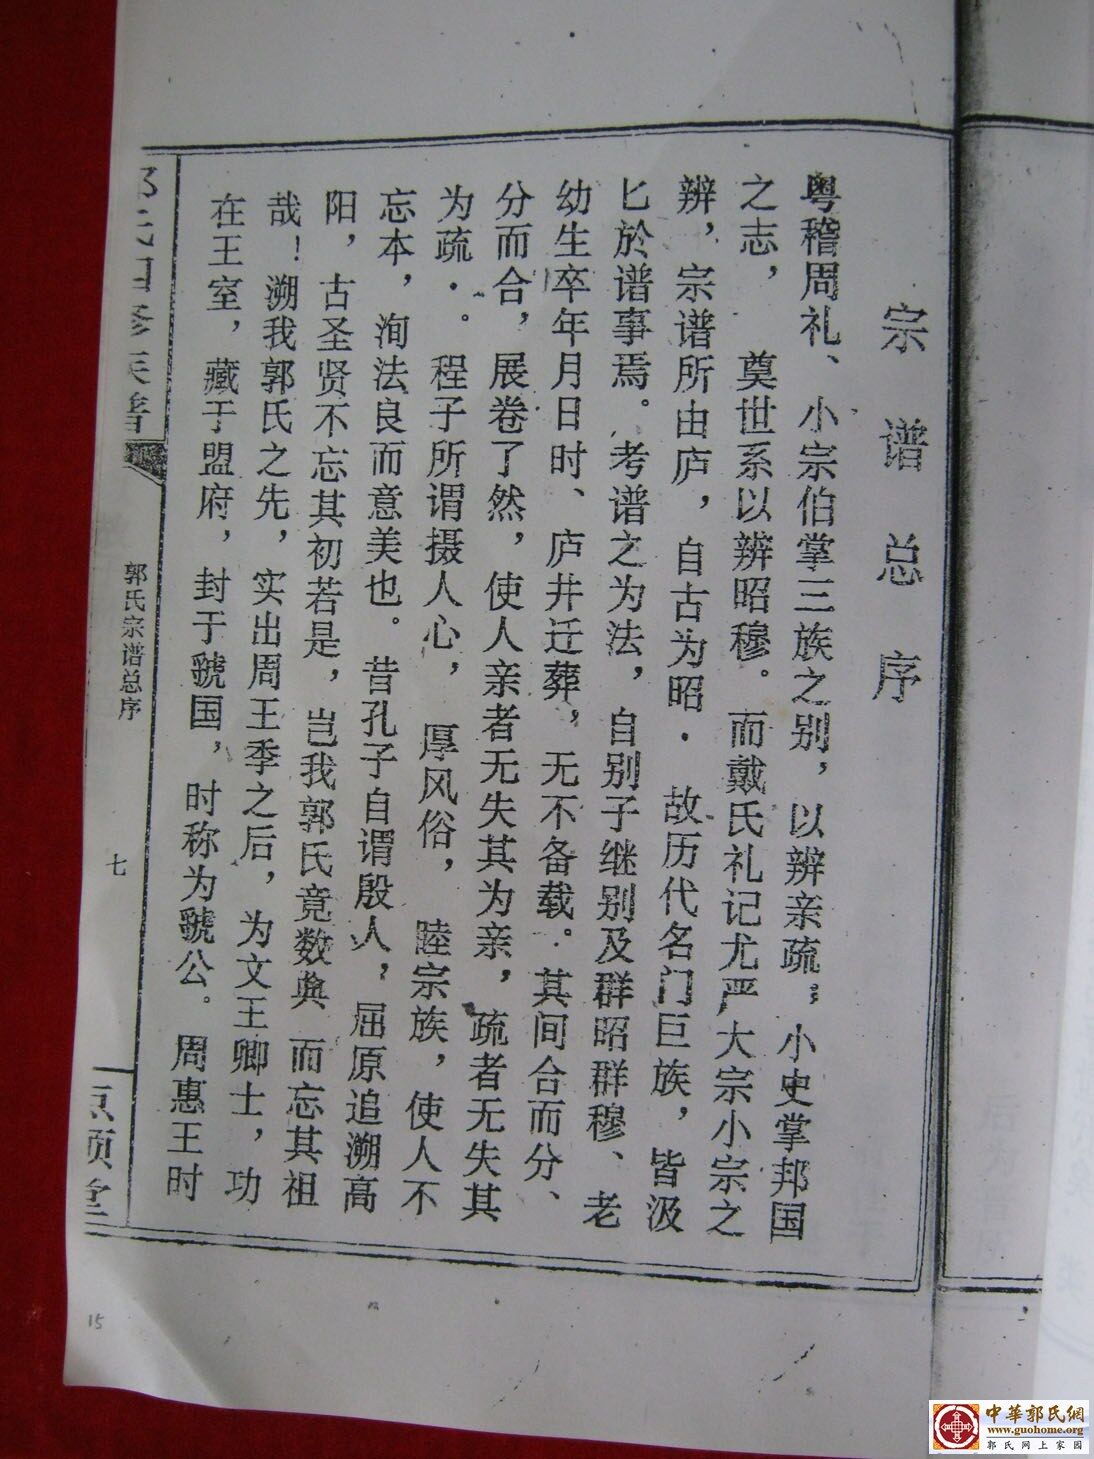 宗谱总序
粤稽周礼、小宗伯掌三族之别，以辨亲疏；小史掌邦国
之志，奠世系以辨昭穆。而戴氏礼记尤严大宗小宗之
辨，宗谱所由庐，自古为昭．故历代名门巨族，皆汲
匕於谱事焉。考谱之为法，自别子继别及群昭群穆、老
幼生卒年月日时、庐井迁葬，无不备载。其间合而分、
分而合，展卷了然，使人亲者无失其为亲，疏者无失其
为疏．。程子所谓摄人心，厚风俗，睦宗族，使人不
忘本，洵法良而意美也。昔孔子自谓殷人，屈原追溯高
阳，古圣贤不忘其初若是，岂我郭氏竟数典而忘其祖
哉！溯我郭氏之先，实出周王季之后，为文王卿士，功
在王室，藏于盟府，封于虢国，时称为虢公。周惠王时
郭氏四修族谱
郭氏宗谱总序
七
堂
15
中華郭氏網
www.guohome.org
郭氏网上家园